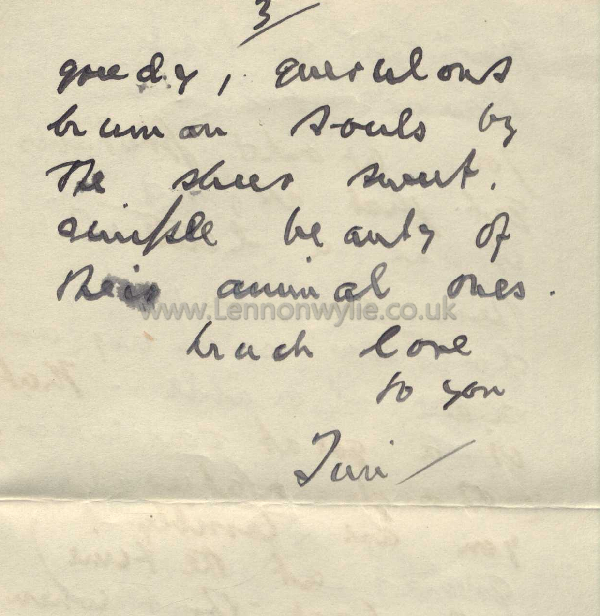 3
greedy, querulous
human souls by
the sheer sweet.
simple beauty of
their animal ones.
www.Lennonwylie.co.uk
much love
to you